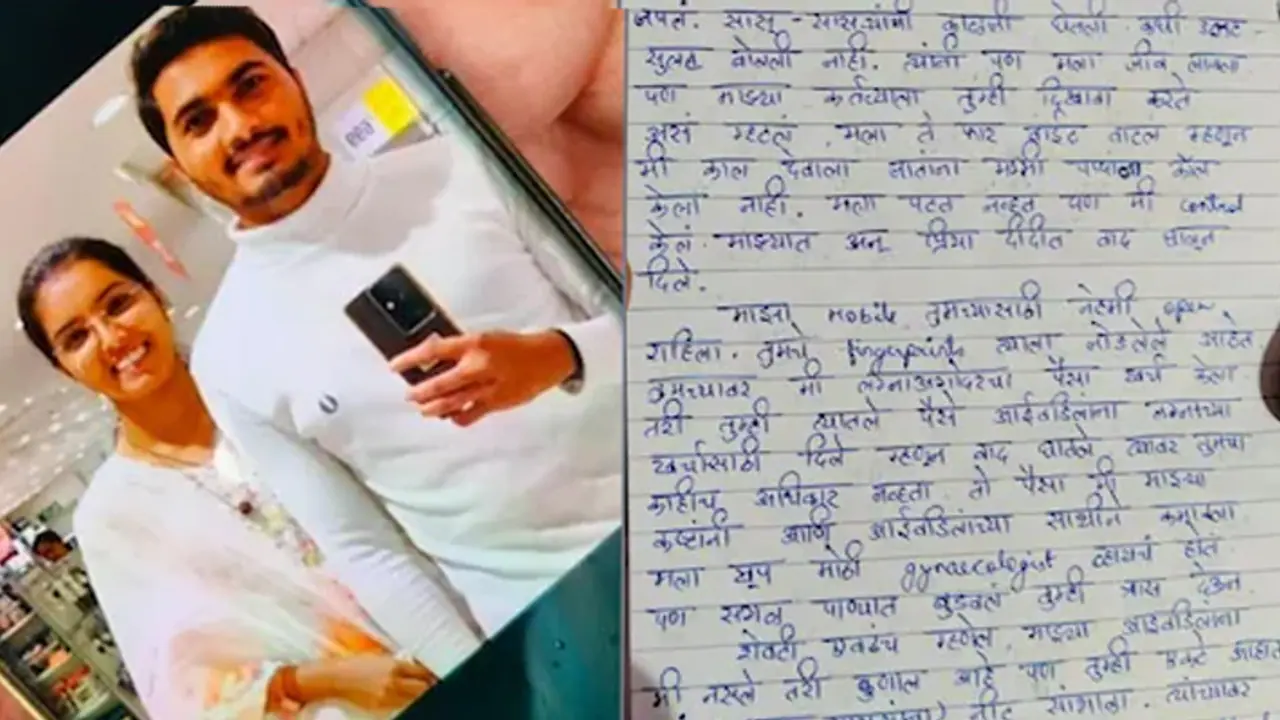 जपत. सासू - सासऱ्यांची काळजी घेतली. कधी उलट -
सुलट बोलली नाही. त्यांनी पण मला जीव लावला
पण माझ्या कर्तव्याला तुम्ही दिखावा करते
असं म्हटलं. मला ते फार वाईट वाटलं म्हणून
मी काल देवाला जाताना मम्मी पप्पाला कॉल
केला नाही. मला पटत नव्हतं पण मी control
केलं. माझ्यात अन् प्रिया दीदीत वाद घालून
दिले.
माझा mobile तुमच्यासाठी नेहमी open
राहिला. तुमचे fingerprints त्याला जोडलेले आहेत
तुमच्यावर मी लग्नाअगोदरचा पैसा खर्च केला
तरी तुम्ही त्यातले पैसे आईवडिलांना लग्नाच्या
खर्चासाठी दिले म्हणून वाद घातले त्यावर तुमचा
काहीच अधिकार नव्हता. तो पैसा मी माझ्या
कष्टांनी आणि आईवडिलांच्या साथीने कमावला
मला खूप मोठी gynaecologist व्हायचं होतं.
पण सगळं पाण्यात बुडवलं तुम्ही त्रास देऊन.
शेवटी एवढंच म्हणेल, माझ्या आईवडिलांना
मी नसले तरी कुणाल आहे पण तुम्ही एकटे आहात
नीट सांभाळा. त्यांच्यावर